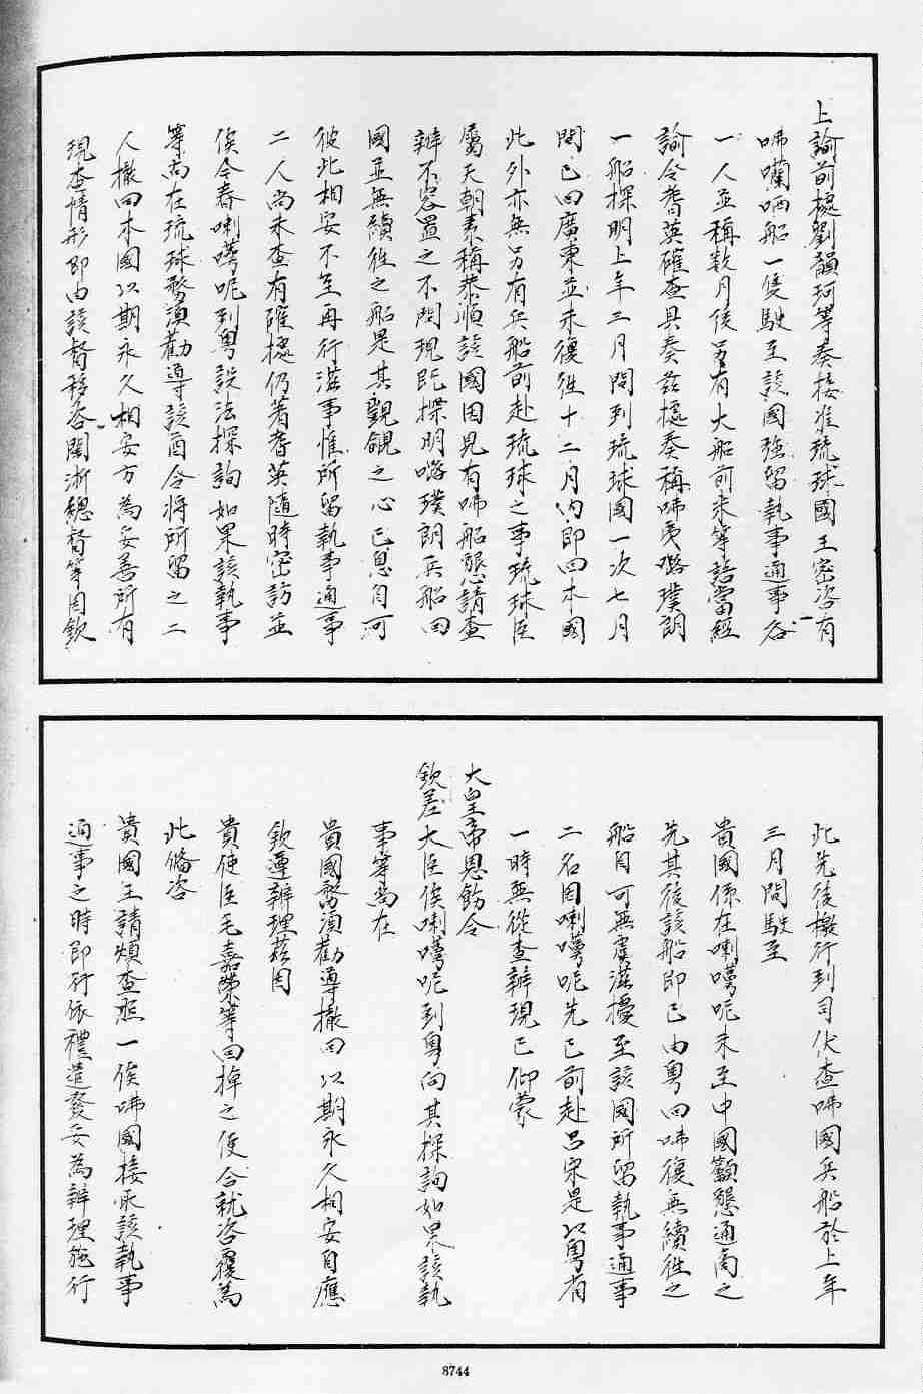 上諭前據劉韻珂等奏接准琉球國王密咨有
咈囒哂船一隻駛至該國強留執事通事各
一人並稱數月後另有大船前來等語當經
諭令耆英確查具奏茲據奏稱咈夷嘚璞朗
一船探明上年三月間到琉球國一次七月
間已回廣東並未復往十二月內即回本國
此外亦無另有兵船前赴琉球之事琉球臣
屬天朝素稱恭順該國因見有咈船懇請查
辦不容置之不問現既探明嘚璞朗兵船回
國並無續往之船是其覬覦之心已息自可
彼此相安不至再行滋事惟所留執事通事
二人尚未查有確據仍著耆英隨時密訪並
俟今春喇嘮呢到粵設法探詢如果該執事
等尚在琉球務須勸導該酋令將所留之二
人撤回本國以期永久相安方為妥善所有
現查情形即由該督移咨閩浙總督等因欽
此先後檄行到司伏查咈國兵船於上年
三月間駛至
貴國係在喇嘮呢未至中國籲懇通商之
先其後該船即已由粵回咈復無續往之
船自可無虞滋擾至該國所留執事通事
二名因喇嘮呢先已前赴呂宋是以粵省
一時無從查辦現已仰蒙
大皇帝恩飭令
欽差大臣俟喇嘮呢到粵向其探詢如果該執
事等尚在
貴國務須勸導撤回以期永久相安自應
欽遵辦理茲因
貴使臣毛嘉榮等回掉之便合就咨覆為
此備咨
貴國王請煩查照一俟咈國接取該執事
通事之時即行依禮遣發妥為辦理施行
8744